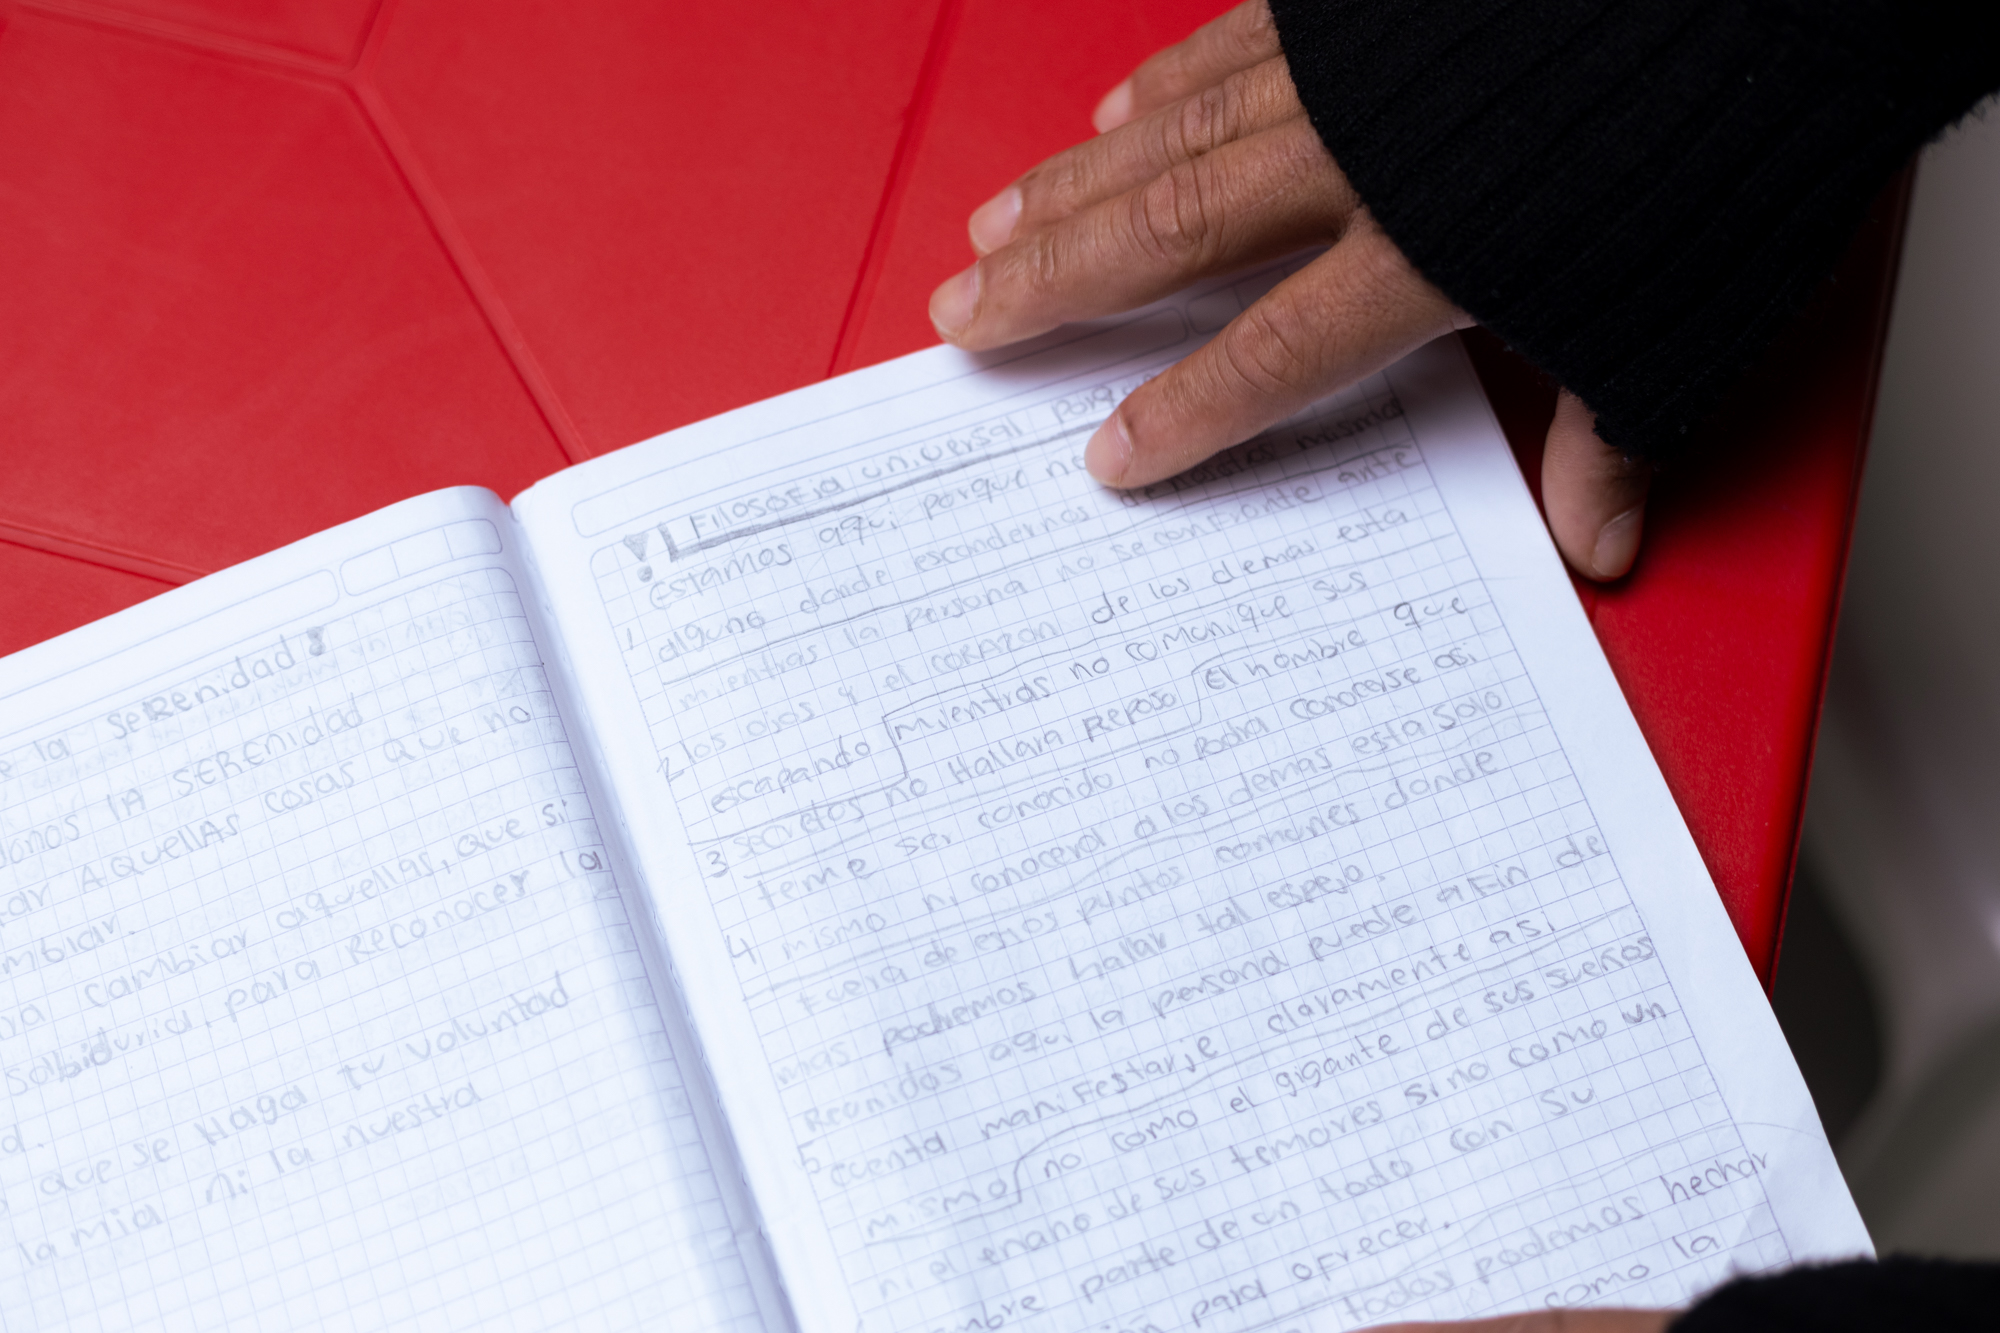 la Serenidad
LA SERENIDAD
AquellAs cosas que no
cambiar aquellas, que si
Sabiduria, para Reconocer la
que se Haga tu voluntad
la mia ni la nuestra
Filosofia universal
Estamos aqui porque no
alguno donde escondernos de nosotros mismo
mientras la persona no se confronte ante
los ojos y el corazon de los demas esta
escapando mientras no comunique sus
secretos no Hallara Reposo El hombre que
teme ser conocido no podra conocerse asi
mismo ni conocera a los demas esta solo
Fuera de estos puntos comunes donde
mas podemos hallar tal espejo.
Reunidos aqui la persona puede a Fin de
cuenta maniFestarse claramente asi
mismo no como el gigante de sus sueños
ni el enano de sus temores sino como un
parte de un todo con su
para ofrecer.
todos podemos hechar
como la
1
2
3
4
5